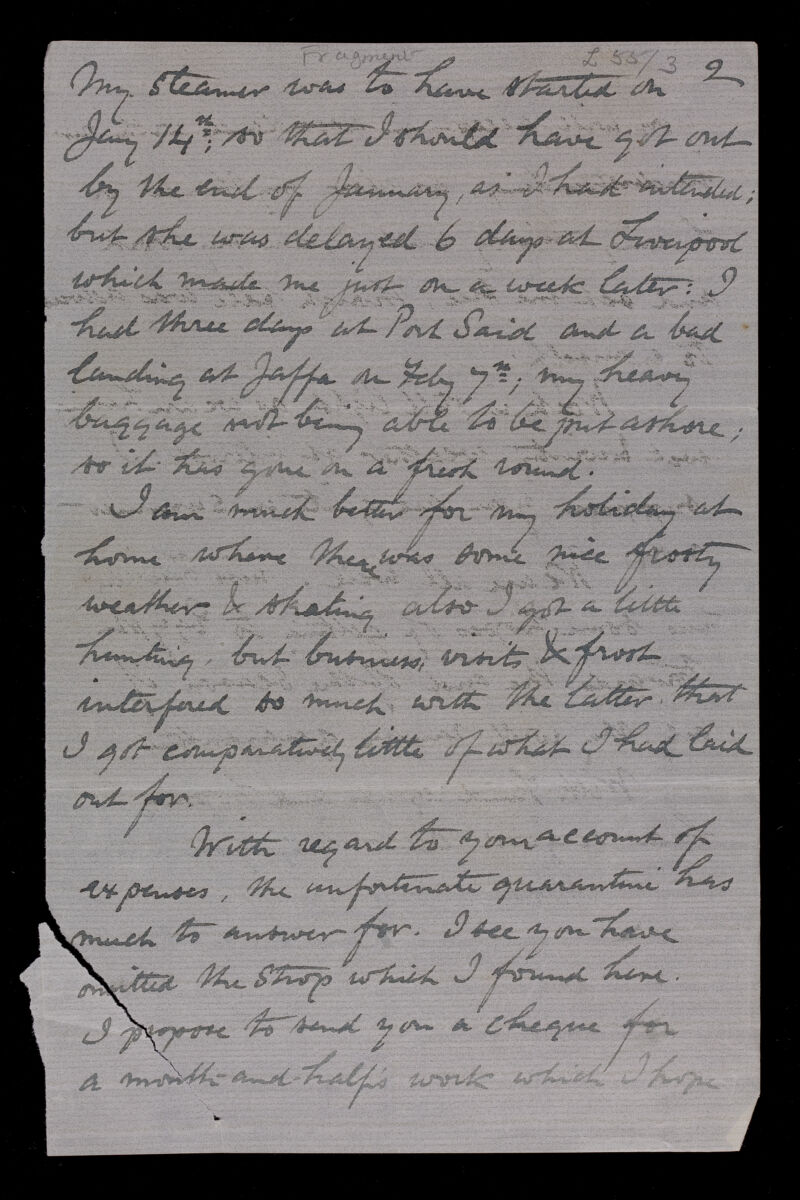 Fragment L 55/3 2
My Steamer was to have started on
Jany 14th; so that I should have got out
by the end of January, as I had intended;
but she was delayed 6 days at Liverpool
which made me just on a week later: I
had three days at Port Said and a bad
landing at Jaffa on Feby 7th; my heavy
baggage not being able to be put ashore;
so it has gone on a fresh round.
I am much better for my holiday at
home where there was some nice frosty
weather & skating also I got a little
hunting, but business, visits, & frost
interfered so much with the latter that
I got comparatively little of what I had laid
out for.
With regard to your account of
expenses, the unfortunate quarantine has
much to answer for. I see you have
omitted the Strop which I found here.
I propose to send you a cheque for
a month-and-half's work which I hope